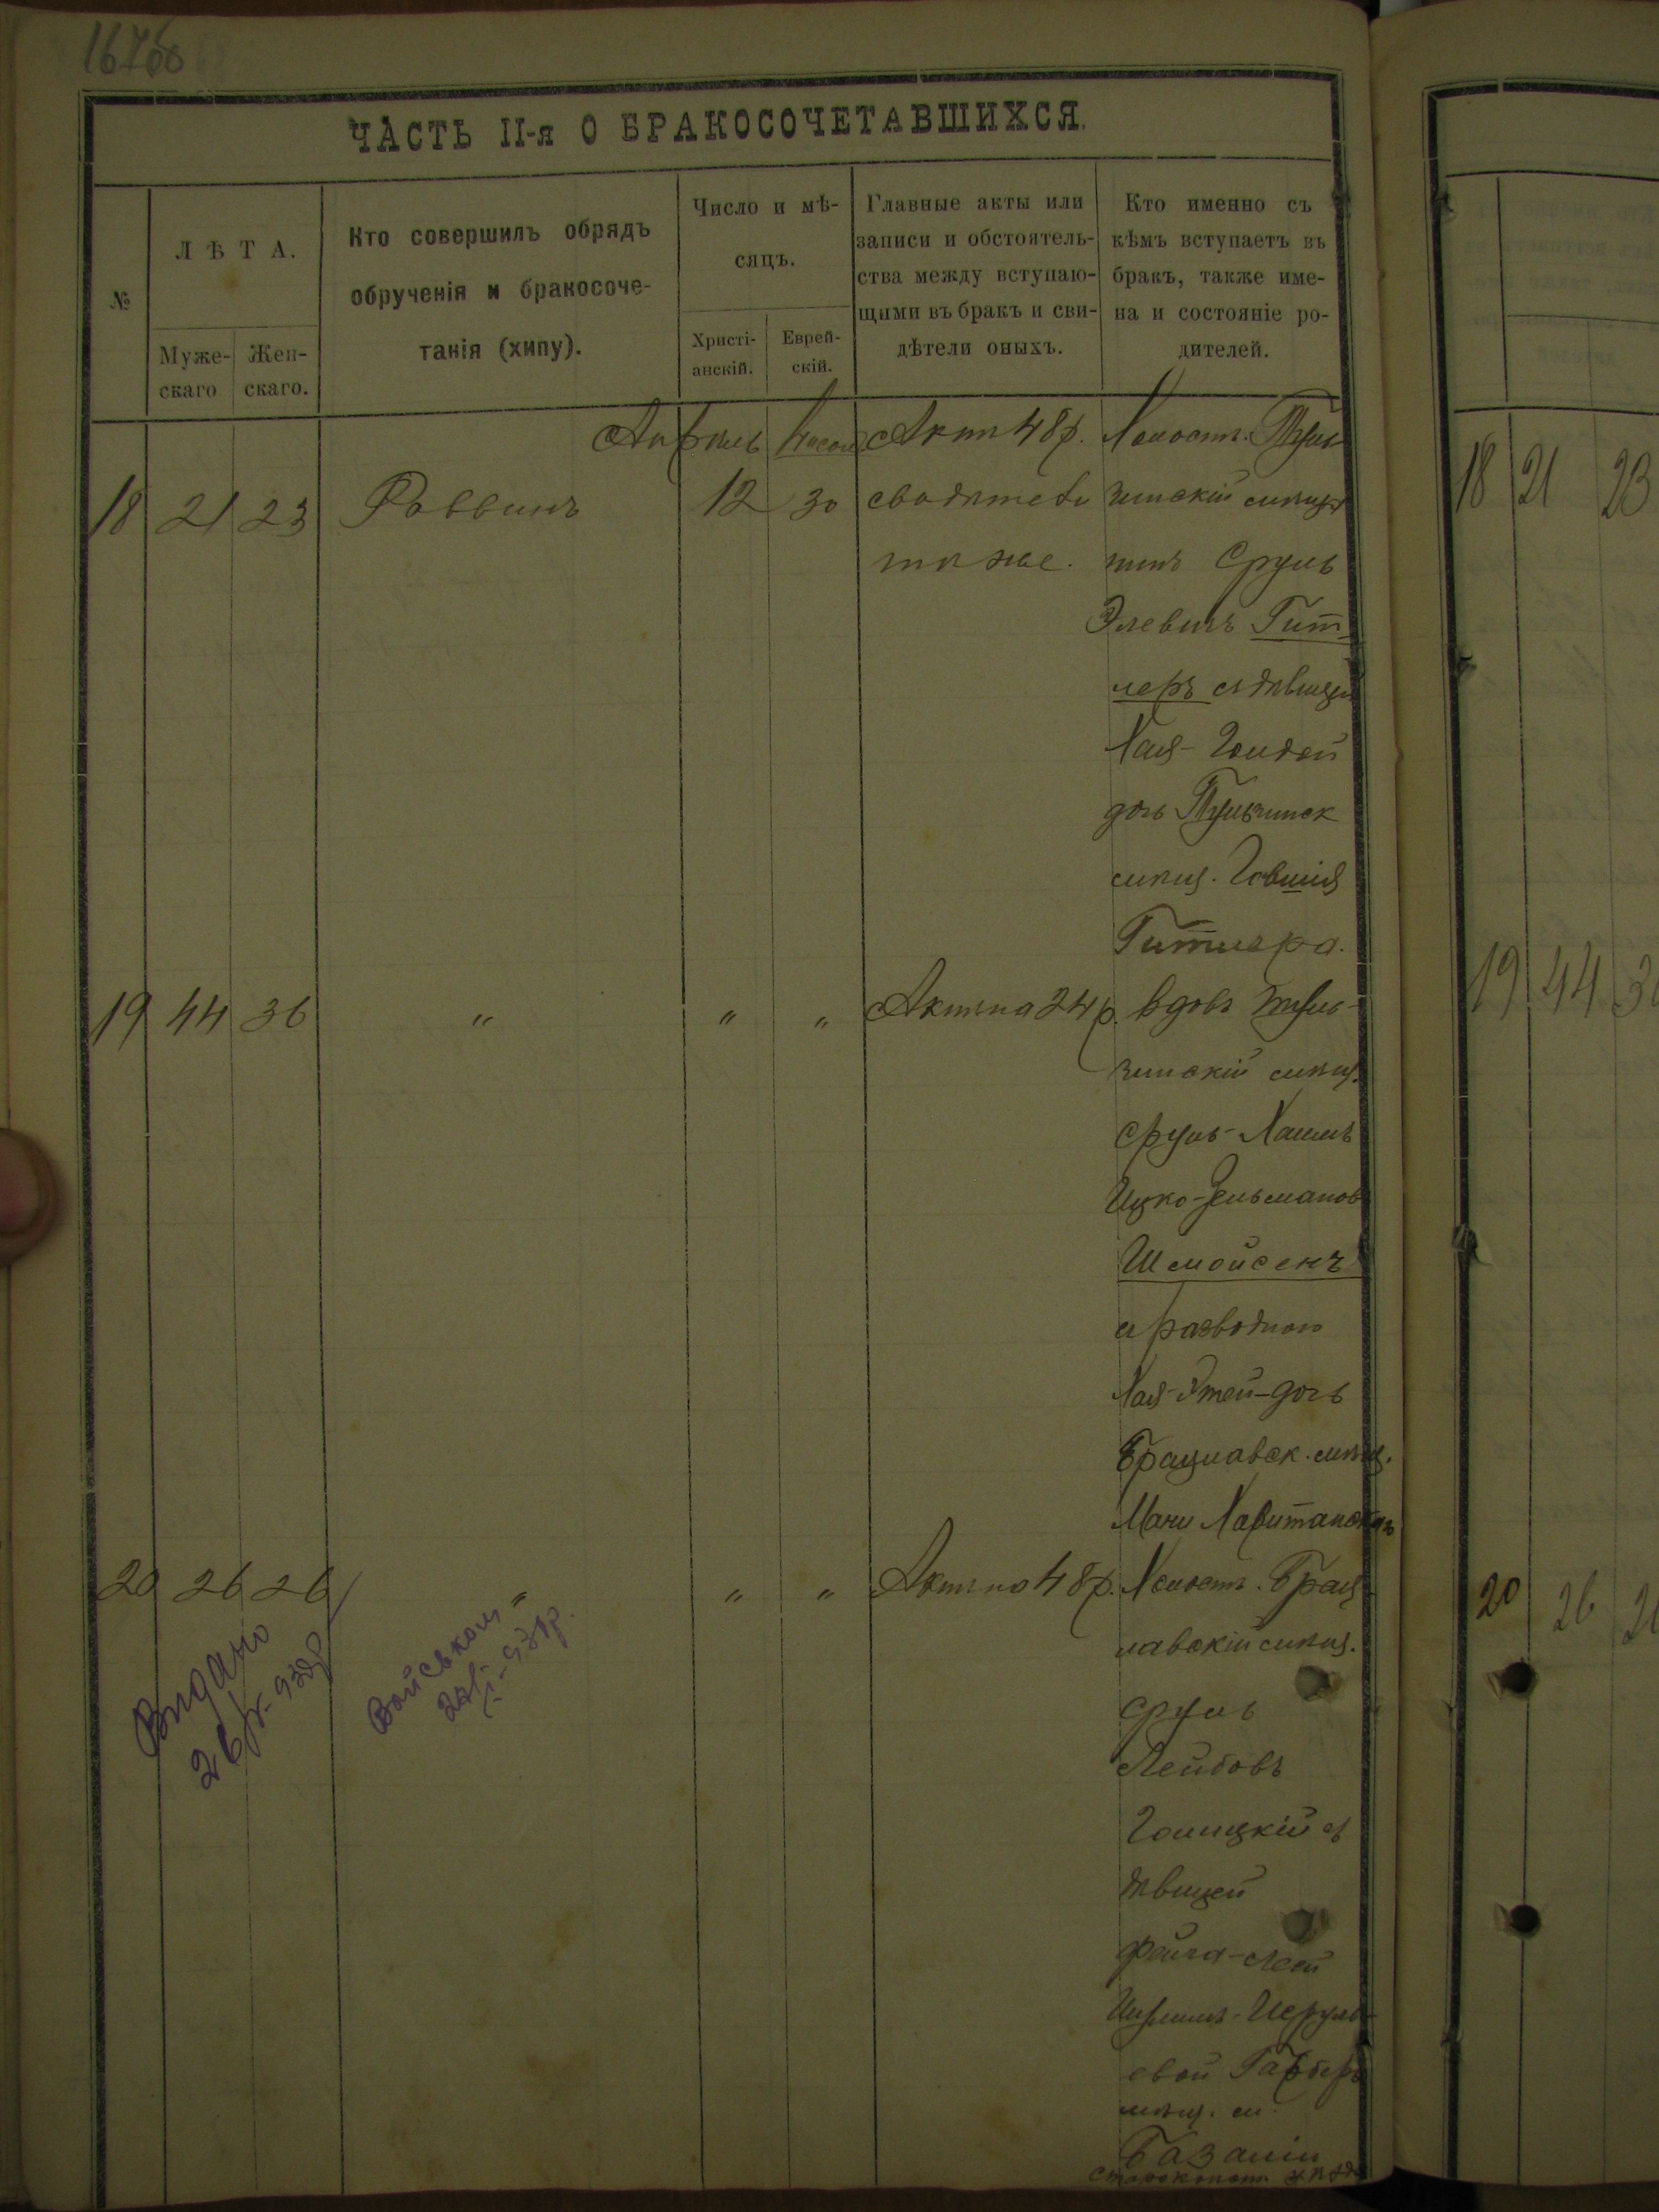 16766
ЧАСТЬ II-я О БРАКОСОЧЕТАВШИХСЯ.
№
ЛѢТА.
Муже-
скаго
Жен-
скаго.
Кто совершилъ обрядъ
обрученія и бракосоче-
танія (хипу).
Число и мѣ-
сяцъ.
Христі-
анскій.
Еврей-
скій.
Главные акты или
записи и обстоятель-
ства между вступаю-
щими въ бракъ и сви-
дѣтели оныхъ.
Кто именно съ
кѣмъ вступаетъ въ
бракъ, также име-
на и состояніе ро-
дителей.
Апрель
18 21 23 Раввинъ 12 30
Актъ 48 р.
свидѣтели
тѣ же.
Холост. Туль-
чинскій мѣща
нинъ Сруль
Элевичъ Гит
леръ съ дѣвицей
Хая-Голдой
дочь Тульчинск
мѣщ. Говшія
Гитлера.
19 44 36 " " "
Актъ на 24 р.
Вдовъ Туль-
чинскій мѣщ.
Сруль-Хаимъ
Ицко-Зельманов
Шмойсенъ
съ разводною
Хая-Этей-дочь
Брацлавск. мѣщ.
20 26 26 " " "
Актъ на 48 р.
Холост. Брац-
лавскій мѣщ.
Сруль
Лейбовъ
Голицкій съ
дѣвицей
Фейга-Леей
евой Гарберъ
мѣщ. м.
Базаліи
Староконст.
Видано
Військом
18 21 23
19 44 3
20 26 2